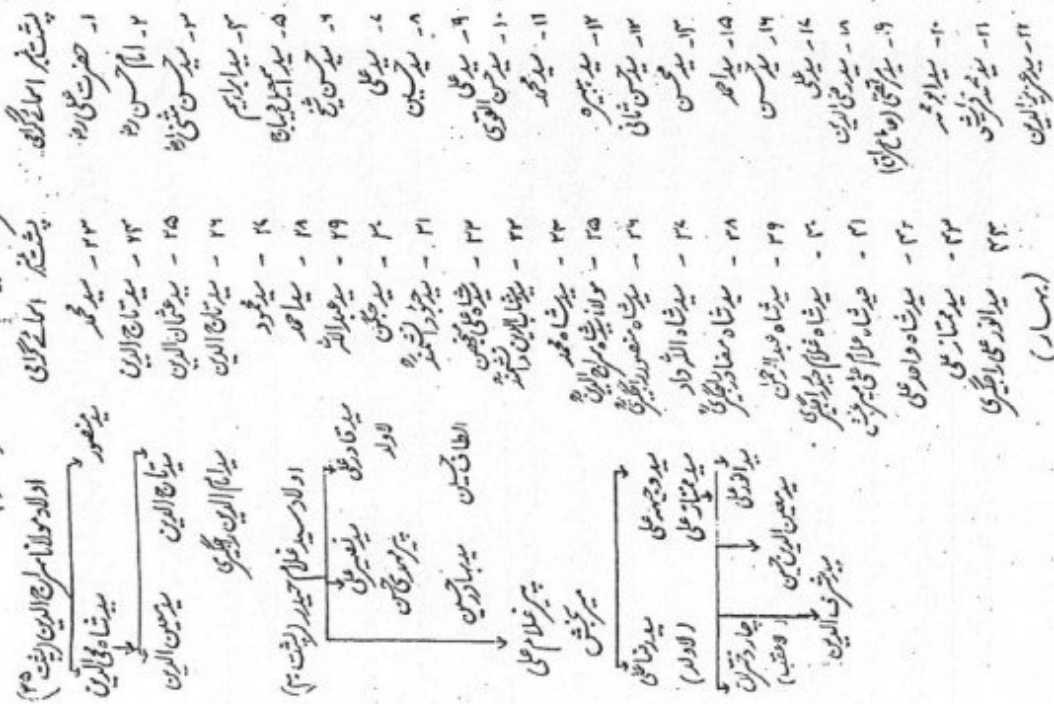 پشت نمبر اسمائے گرامی
۱- حضرت علی رض
۲- امام حسن رض
۳- سید حسن مثنی رض
۴- سید ابراہیم
۵- سید اسمعیل دیباج
۶- سید حسن
۷- سید علی
۸- سید حسین
۹- سید علی
۱۰- سید حسن القوی
۱۱- سید محمد
۱۲- سید ہبیرہ
۱۳- سید حسن ثانی
۱۴- سید محسن
۱۵- سید احمد
۱۶- سید حسن
۱۷- سید علی
۱۸- سید محی الدین
۱۹-
۲۰- سید ابو محمد
۲۱- سید محمد قریشی
۲۲- سید عزیز الدین
پشت نمبر اسمائے گرامی
۲۳- سید محمد
۲۴- سید تاج الدین
۲۵- سید عثمان الدین
۲۶- سید تاج الدین
۲۷- سید محمود
۲۸- سید احمد
۲۹- سید عبداللہ
۳۰- سید جگن
۳۱- دانشمند
۳۲-
۳۳- دانشمند
۳۴- سید شاہ محمد
۳۵- مولانا سید شاہ سراج الدین
۳۶- سید شاہ منصور راجگیری
۳۷- سید شاہ اللہ داد
۳۸- سید شاہ راجگیری
۳۹- سید شاہ عبدالرحمن
۴۰- سید شاہ غلام حیدر راجگیری
۴۱- سید شاہ غلام علی میر بخش
۴۲- سید شاہ واحد علی
۴۳- سید ممتاز علی
۴۴- سید انور علی راجگیری
(بہار)
اولاد مولانا سراج الدین (پشت ۳۵)
سید منصور
سید شاہ محی الدین
سید تاج الدین
سید معین الدین
سید امام الدین راجگیری
اولاد سید غلام حیدر (پشت ۴۰)
سید قادر علی
لاولد
سید نصیر علی
پیر مہدی حسن
الطاف حسین
سید بہادر حسین
پیر غلام علی
میر بخش
سید وجیہہ علی
سید رضا علی
(لاولد)
سید ممتاز علی
سید انور علی
سید معین الدین حسن
سید شرف الدین
چار دختران